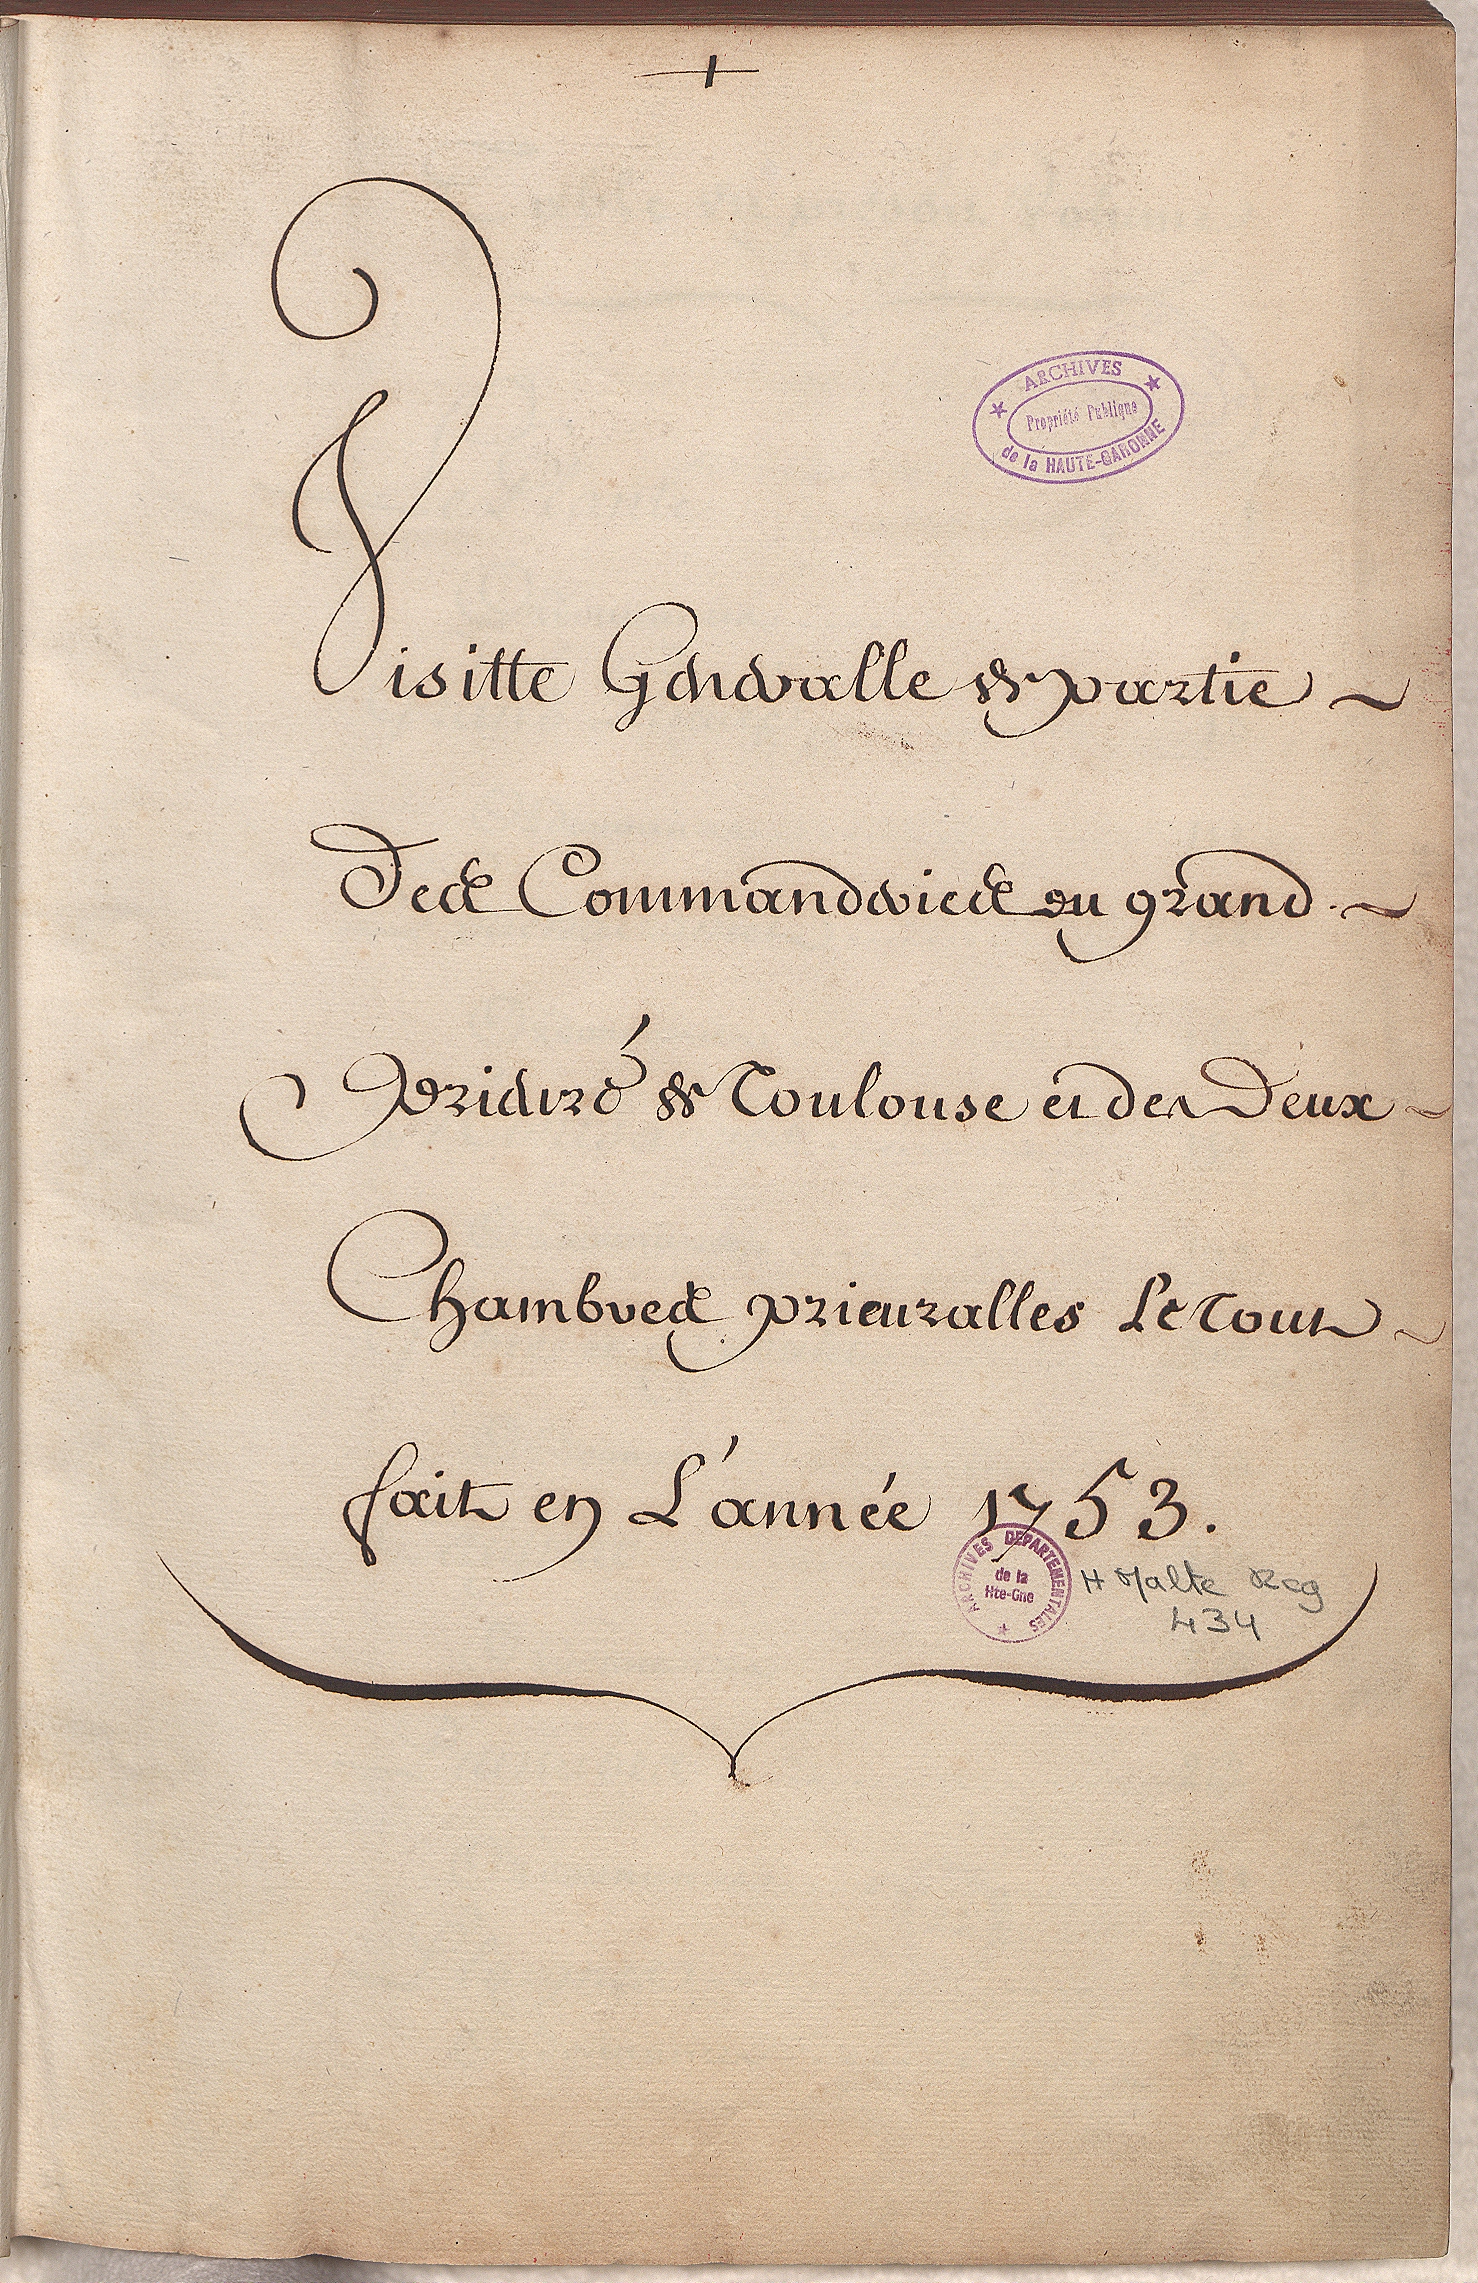 +
ARCHIVES
Propriété Publique
de la HAUTE-GARONNE
Visitte Generalle de partie ~
Des Commanderies du grand ~
Prieuré de Toulouse et des Deux ~
Chambres prieuralles Le Tout ~
fait en L'année 1753.
ARCHIVES DEPARTEMENTALES
de la
Hte-Gne
H Malte Reg
434